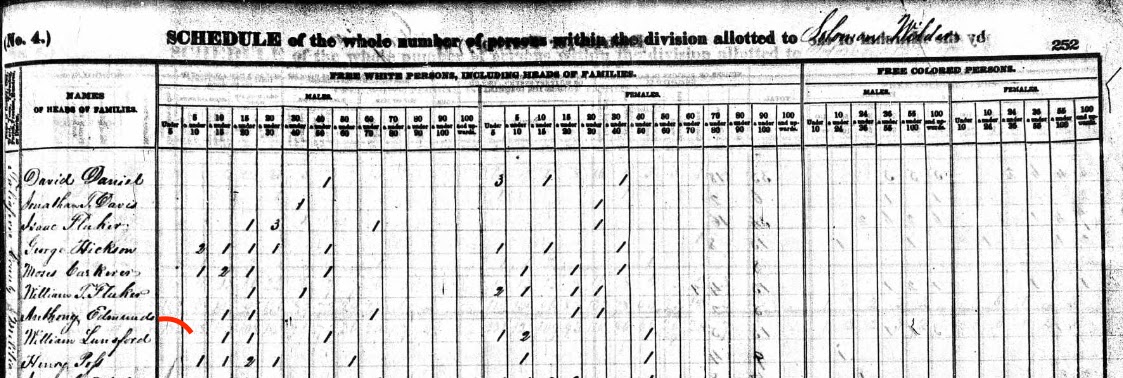 (No. 4.) SCHEDULE of the whole number of persons within the division allotted to 252
FREE WHITE PERSONS, INCLUDING HEADS OF FAMILIES. FREE COLORED PERSONS.
NAMES OF HEADS OF FAMILIES.
MALES. FEMALES. MALES. FEMALES.
Under 5 5 & under 10 10 & under 15 15 & under 20 20 & under 30 30 & under 40 40 & under 50 50 & under 60 60 & under 70 70 & under 80 80 & under 90 90 & under 100 100 and upwards.
Under 5 5 & under 10 10 & under 15 15 & under 20 20 & under 30 30 & under 40 40 & under 50 50 & under 60 60 & under 70 70 & under 80 80 & under 90 90 & under 100 100 and upwards.
Under 10 10 & under 24 24 & under 36 36 & under 55 55 & under 100 100 and upwards.
Under 10 10 & under 24 24 & under 36 36 & under 55 55 & under 100 100 and upwards.
David Daniel 1 3 1 1
Jonathan T. Davis 1 1
Isaac Fluker 1 3 1 1
George Hickson 2 1 1 1 1 1 1 1
Moses 1 2 1 1 1 1 1
William T. Fluker 1 1 2 1 1 1
Anthony Edmunds 1 1 1 1 1
William Lunsford 1 1 1 1 2 1
Henry Poss 1 1 2 1 1 1 1